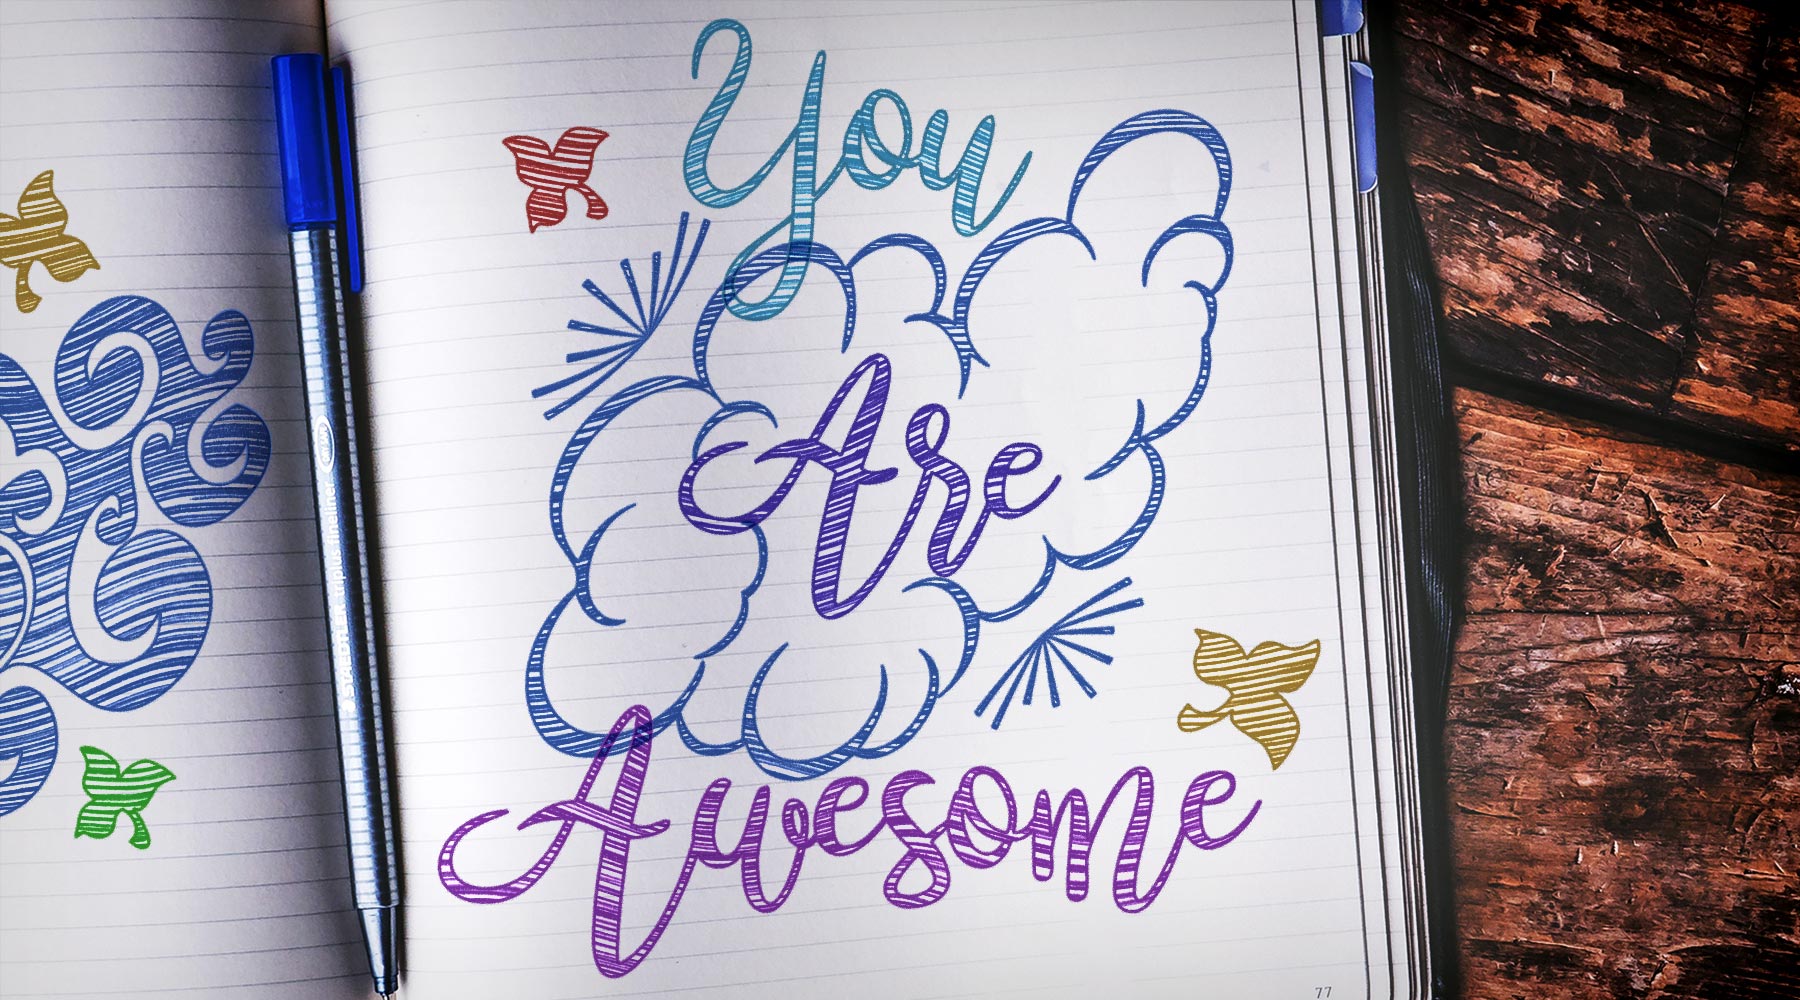 You
Are
Awesome
STAEDTLER triplus fineliner
77